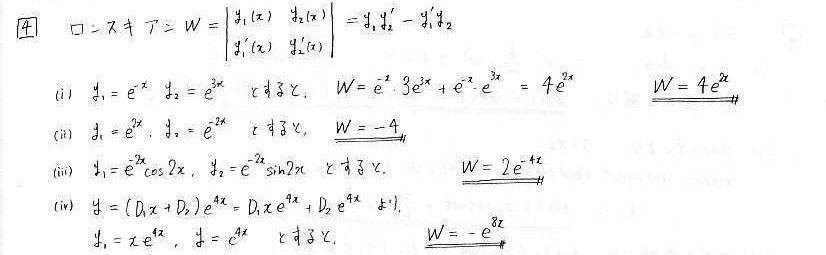 [4] ロンスキアン W = | y₁(x) y₂(x) | = y₁y₂' - y₁'y₂
| y₁'(x) y₂'(x) |
(i) y₁ = e^{-x} y₂ = e^{3x} とすると、 W = e^{-x}・3e^{3x} + e^{-x}・e^{3x} = 4e^{2x} W = 4e^{2x}
(ii) y₁ = e^{2x}, y₂ = e^{-2x} とすると、 W = -4
(iii) y₁ = e^{-2x}cos2x, y₂ = e^{-2x}sin2x とすると、 W = 2e^{-4x}
(iv) y = (D₁x + D₂)e^{4x} = D₁xe^{4x} + D₂e^{4x} より、
y₁ = xe^{4x}, y = e^{4x} とすると、 W = -e^{8x}